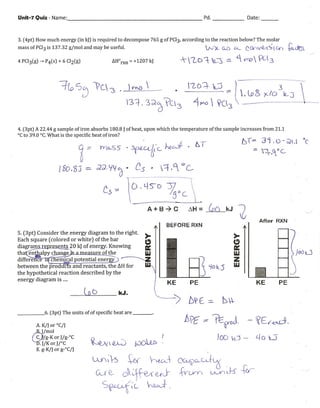 Unit-7 Quiz - Name: Pd. Date:
3. (4pt) How much energy (in kJ) is required to decompose 765 g of PCl3, according to the reaction below? The molar
mass of PCl3 is 137.32 g/mol and may be useful.
Use as a conversion factor
4 PCl3(g) → P4(s) + 6 Cl2(g) ΔH°rxn = +1207 kJ
+1207 kJ = 4 mol PCl3
765g PCl3 . 1mol . 1207 kJ = 1.68 x10³ kJ
137.32g PCl3 4mol PCl3
4. (3pt) A 22.44 g sample of iron absorbs 180.8 J of heat, upon which the temperature of the sample increases from 21.1
°C to 39.0 °C. What is the specific heat of iron?
ΔT= 39.0-21.1 °C
= 17.9°C
q = mass · specific heat · ΔT
180.8J = 22.44g · Cs · 17.9°C
Cs = 0.450 J/g°C
A + B → C ΔH = 60 kJ
BEFORE RXN
After RXN
5. (3pt) Consider the energy diagram to the right.
Each square (colored or white) of the bar
diagrams represents 20 kJ of energy. Knowing
that enthalpy change is a measure of the
difference in chemical potential energy
between the products and reactants, the ΔH for
the hypothetical reaction described by the
energy diagram is ...
60 kJ.
ENERGY
40kJ
KE PE
ENERGY
100kJ
KE PE
ΔPE = ΔH
6. (3pt) The units of specific heat are
ΔPE = PEprod - PEreact.
100 kJ - 40 kJ
A. K/J or °C/J
B. J/mol
C. J/g·K or J/g·°C
D. J/K or J/°C
E. g·K/J or g·°C/J
Review notes!
units for heat capacity
are different from units for
specific heat.